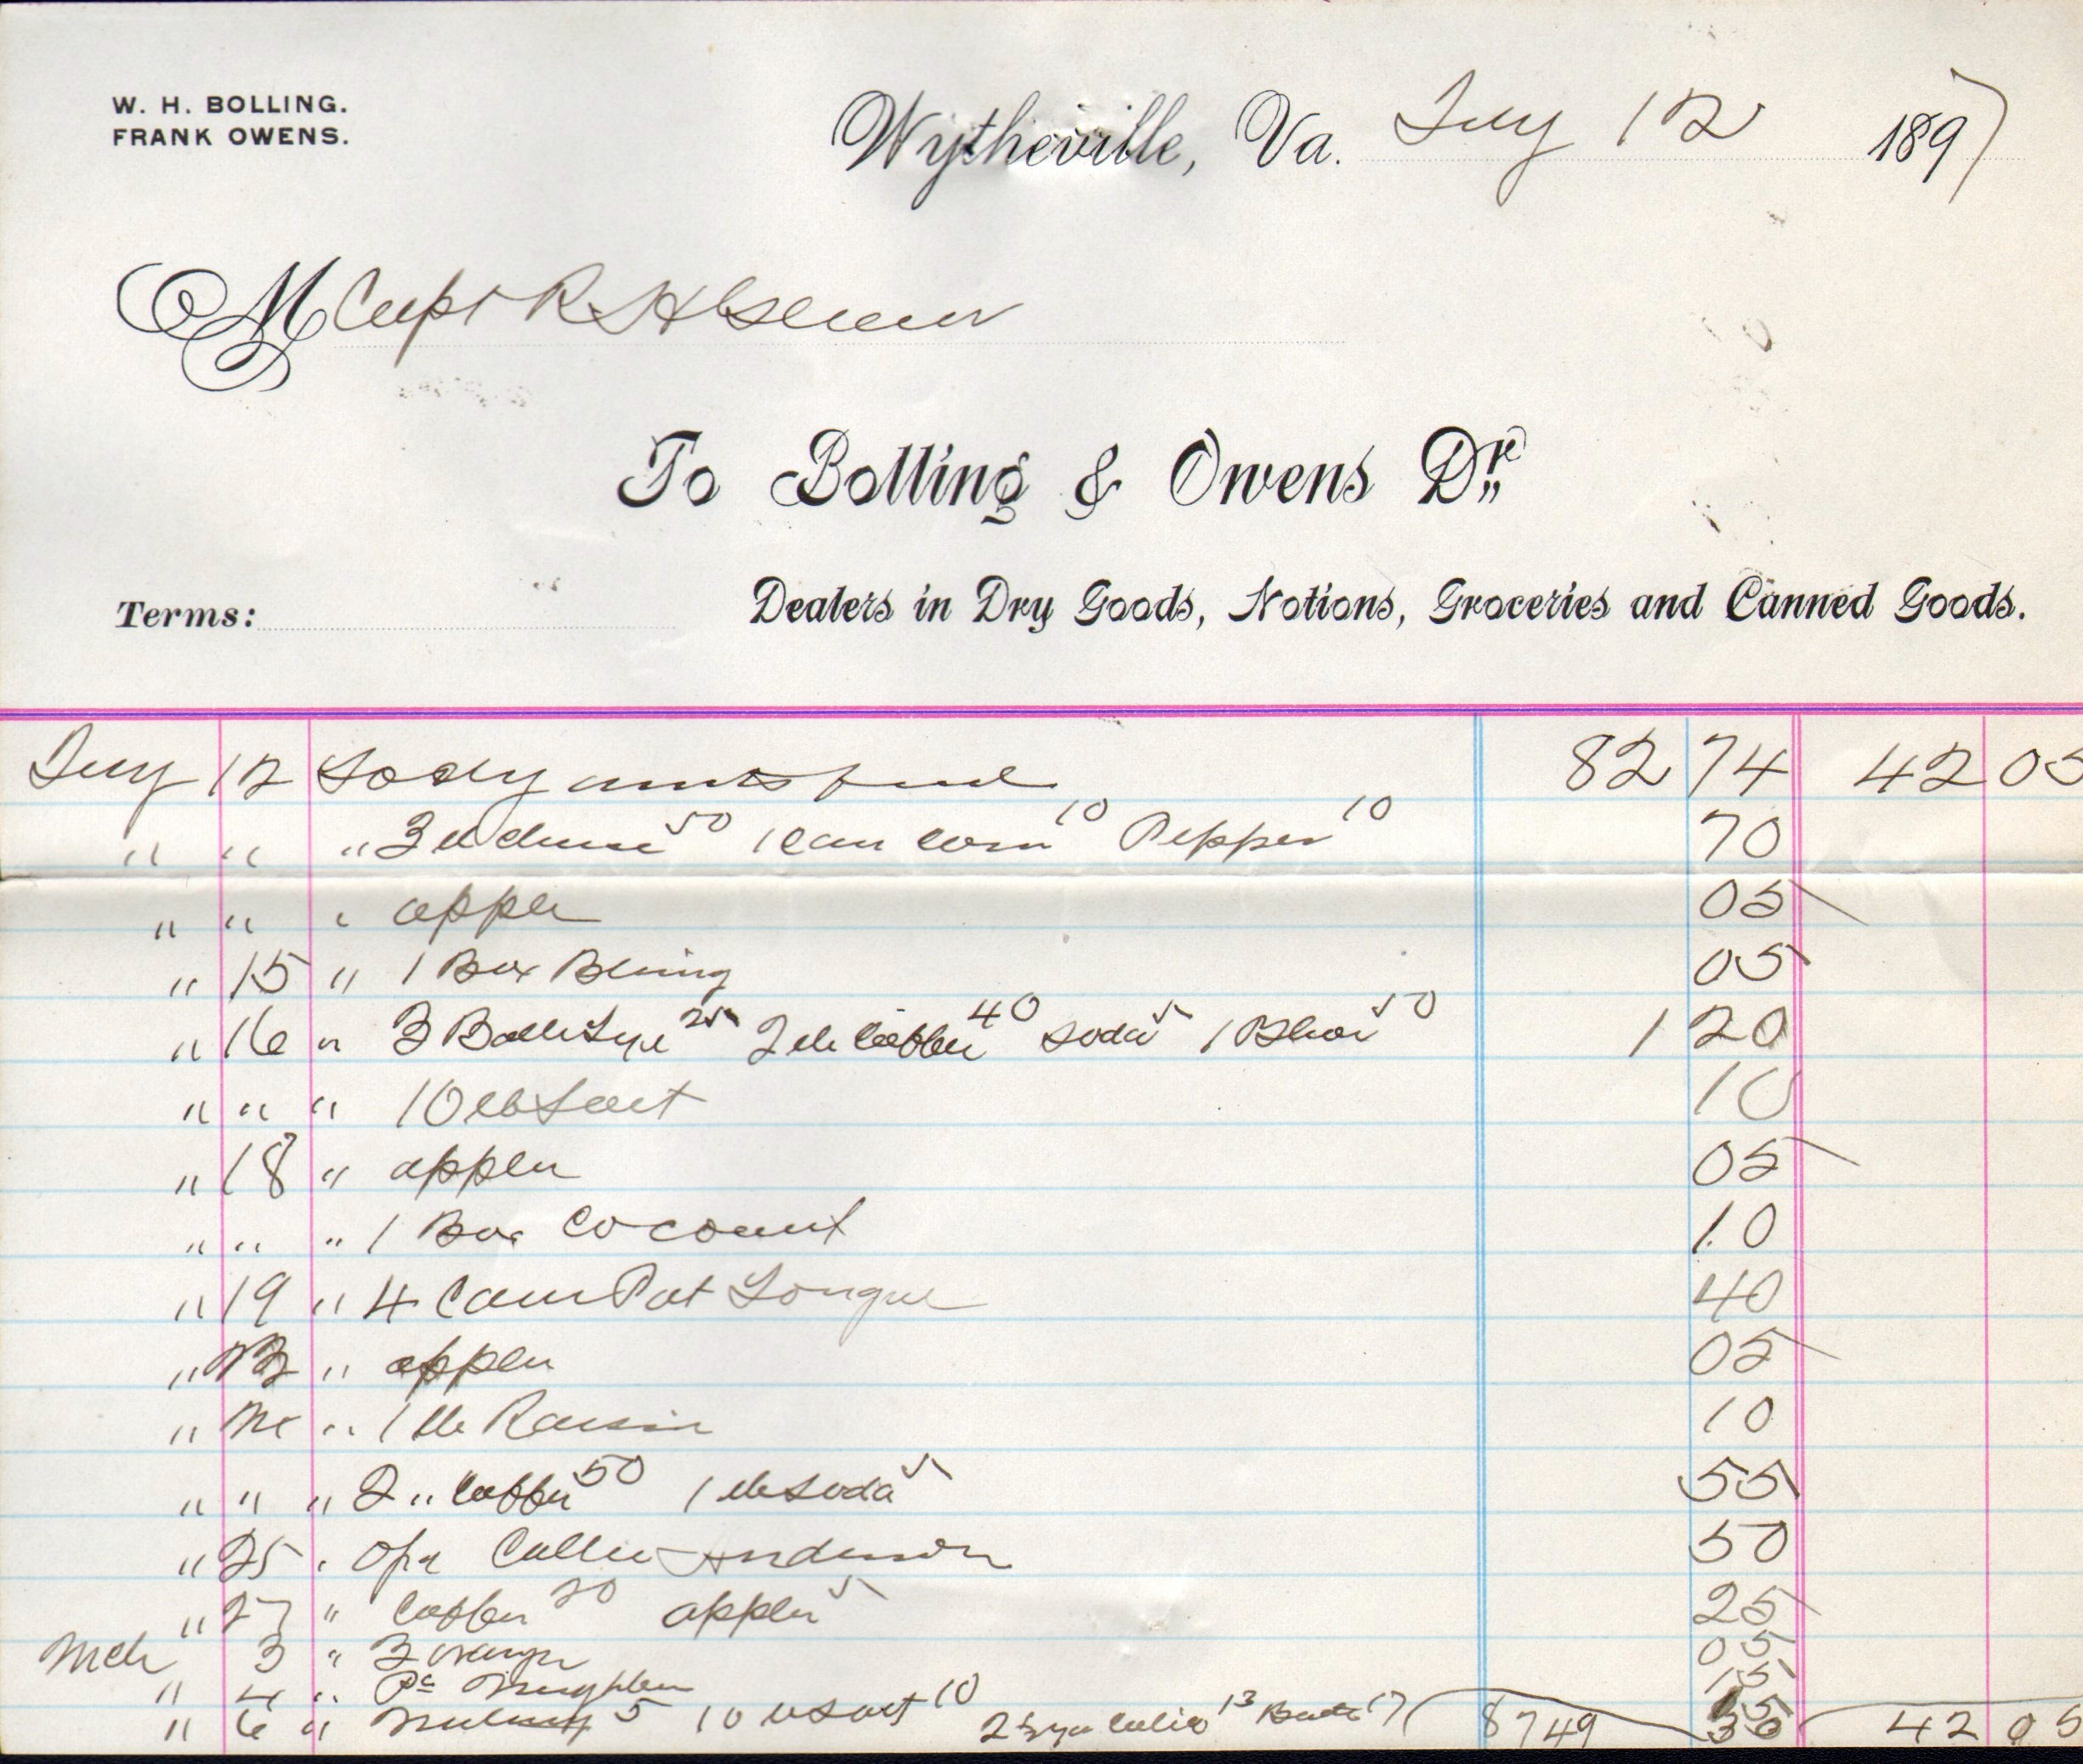 W. H. BOLLING.
FRANK OWENS.
Wytheville, Va. 12 1897
M Capt R S H
To Bolling & Owens Dr
Terms: Dealers in Dry Goods, Notions, Groceries and Canned Goods.
12 82 74 42 05
" " " 3 50 1 Can Corn 10 Pepper 10 70
" " " apple 05
" 15 " 1 Box Bluing 05
" 16 " 3 25 2 lb Coffee 40 Soda 5 1 50 1 20
" " " 10 lb Salt 10
" 18 " apples 05
" " " 1 Box Cocoanut 10
" 19 " 4 Cans Pot Tongue 40
" " apples 05
" " 1 lb Raisin 10
" " " 2 " Coffee 50 1 lb Soda 5 55
" 25 " Callie Anderson 50
" 27 " Coffee 20 apples 5 25
Mch 3 " 3 orange 05
" 4 " Pc 15
" 6 " 5 10 lb Salt 10 2½ yd Calico 13 17 87 49 42 05